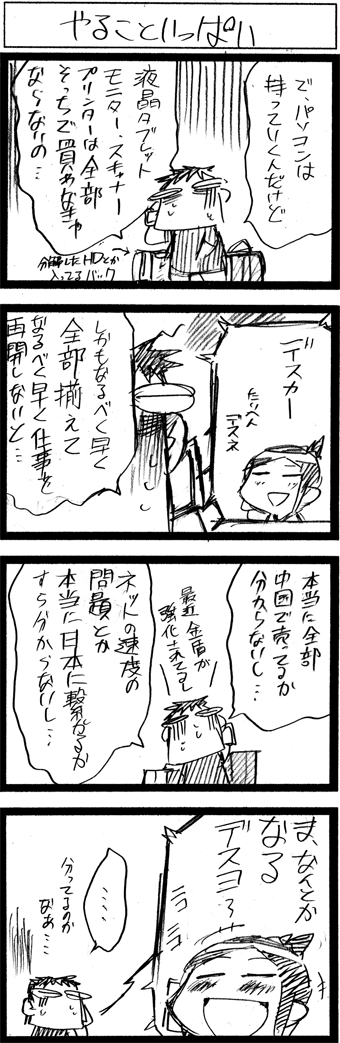 やることいっぱい
で、パソコンは
持っていくんだけど
液晶タブレット
モニター、スキャナー
プリンターは全部
そっちで買わなきゃ
ならないの…
分解したHDとか
入ってるバック
デスカー
たいへん
デスネ
しかもなるべく早く
全部揃えて
なるべく早く仕事を
再開しないと…
本当に全部
中国で売ってるか
分からないし…
最近金盾が
強化されてるし
ネットの速度の
問題とか
本当に日本に繋がるか
すら分からないし…
ま、なんとか
なる
デスヨ〜
ニコ
ニコ
……
分ってるのか
なぁ…